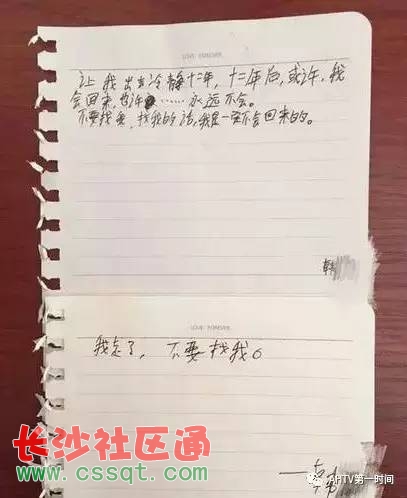 LOVE FOREVER
让我出去冷静十二年,十二年后,或许,我
会回来,也许……永远不会。
不要找我,找我的话,我是一定不会回来的。
韩
LOVE FOREVER
我走了,不要找我。
——韩
长沙社区通
www.cssqt.com
AHTV第一时间